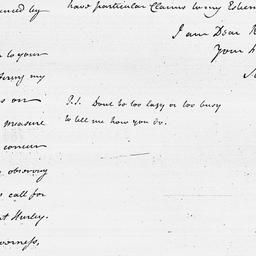 by
to your
my
as on
measure
concern
observing
call for
at Hurley.
have particular Claims to my Esteem
I am Dear
Your
P.S. Dont be too lazy or too busy
to tell me how you do.